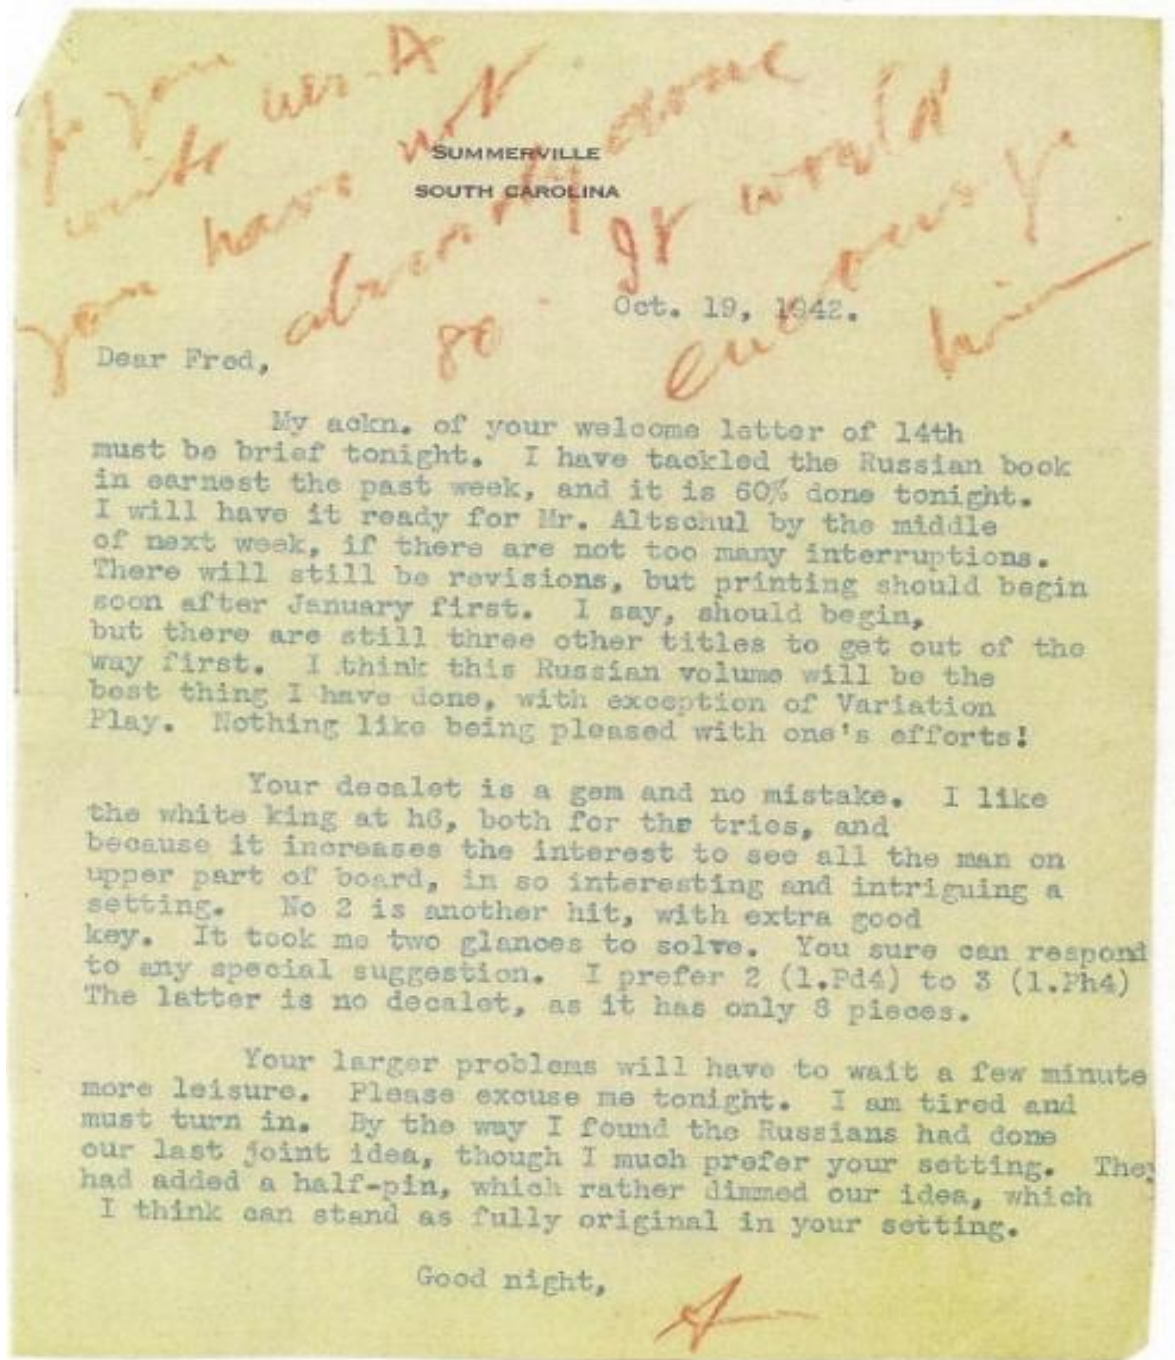 you
write
you have not
already done
so. It would
encourage
him
SUMMERVILLE
SOUTH CAROLINA
Oct. 19, 1942.
Dear Fred,
My ackn. of your welcome letter of 14th
must be brief tonight. I have tackled the Russian book
in earnest the past week, and it is 60% done tonight.
I will have it ready for Mr. Altschul by the middle
of next week, if there are not too many interruptions.
There will still be revisions, but printing should begin
soon after January first. I say, should begin,
but there are still three other titles to get out of the
way first. I think this Russian volume will be the
best thing I have done, with exception of Variation
Play. Nothing like being pleased with one's efforts!
Your decalet is a gem and no mistake. I like
the white king at h6, both for the tries, and
because it increases the interest to see all the man on
upper part of board, in so interesting and intriguing a
setting. No 2 is another hit, with extra good
key. It took me two glances to solve. You sure can respond
to any special suggestion. I prefer 2 (1.Pd4) to 3 (1.Ph4)
The latter is no decalet, as it has only 8 pieces.
Your larger problems will have to wait a few minute
more leisure. Please excuse me tonight. I am tired and
must turn in. By the way I found the Russians had done
our last joint idea, though I much prefer your setting. They
had added a half-pin, which rather dimmed our idea, which
I think can stand as fully original in your setting.
Good night,
A